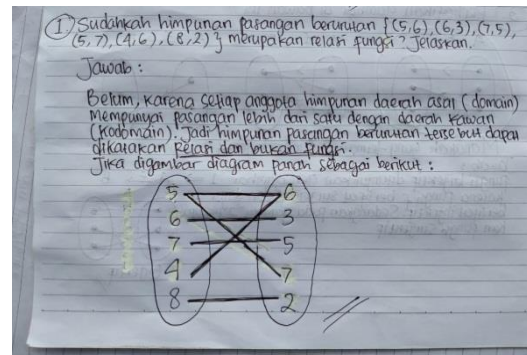 ① Sudahkah himpunan pasangan berurutan {(5,6), (6,3), (7,5),
(5,7), (4,6), (8,2)} merupakan relasi fungsi? Jelaskan.
Jawab :
Belum, karena setiap anggota himpunan daerah asal (domain)
mempunyai pasangan lebih dari satu dengan daerah kawan
(kodomain). Jadi himpunan pasangan berurutan tersebut dapat
dikatakan relasi dan bukan fungsi.
Jika digambar diagram panah sebagai berikut :
5 6
6 3
7 5
4 7
8 2